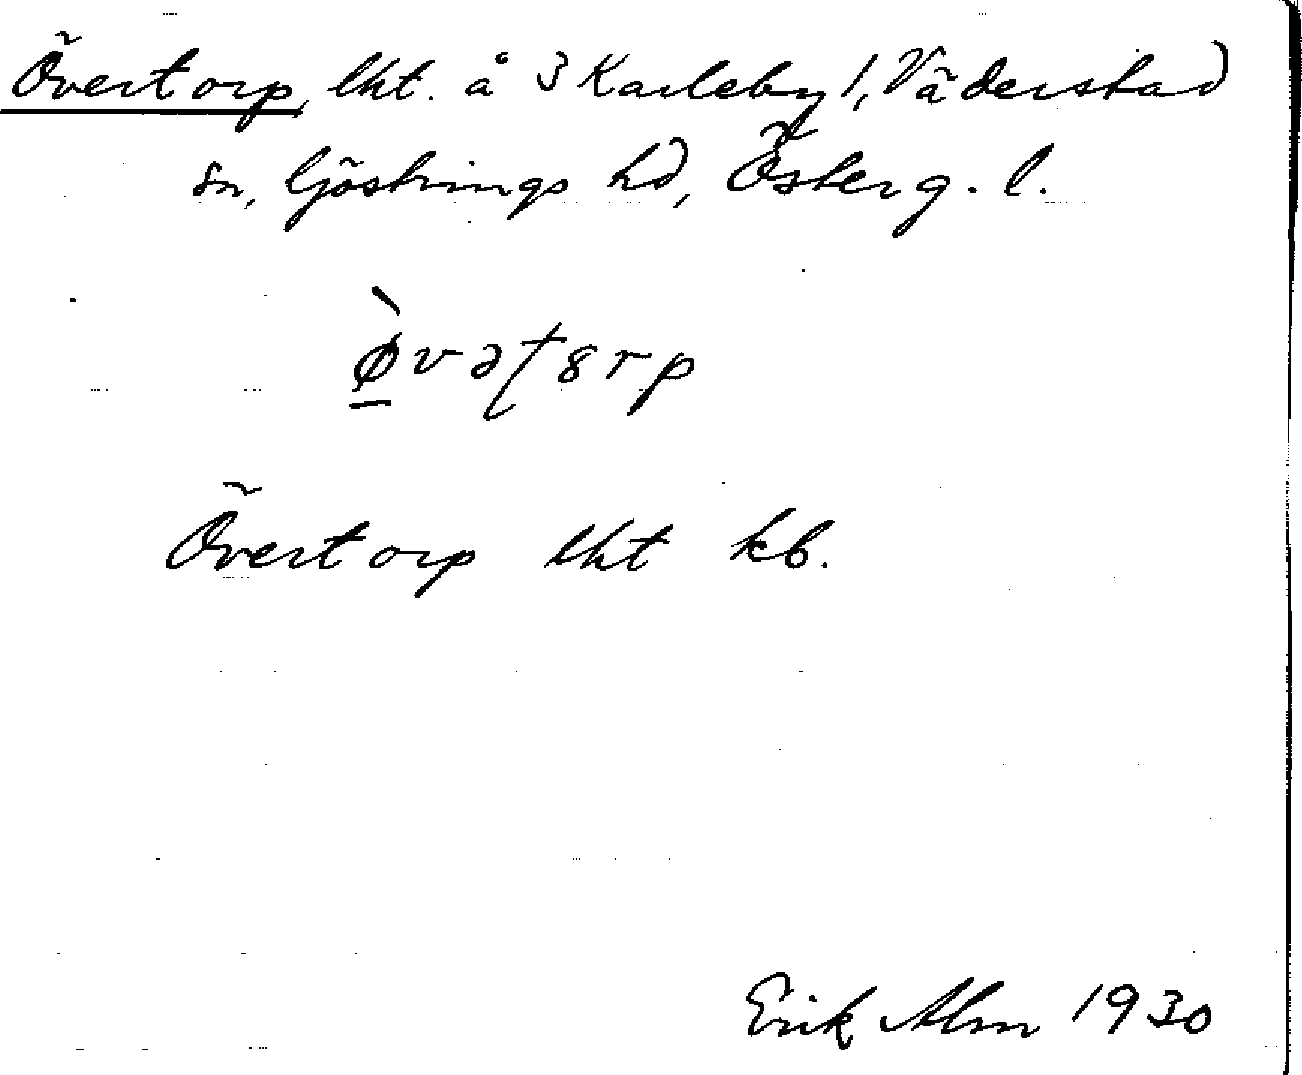 Övertorp, lht. å 3 Karleby 1, Väderstad
sn, Göstrings hd, Österg. l.
ø̀vəʈ8rp
Övertorp lht kb.
Erik Alm 1930